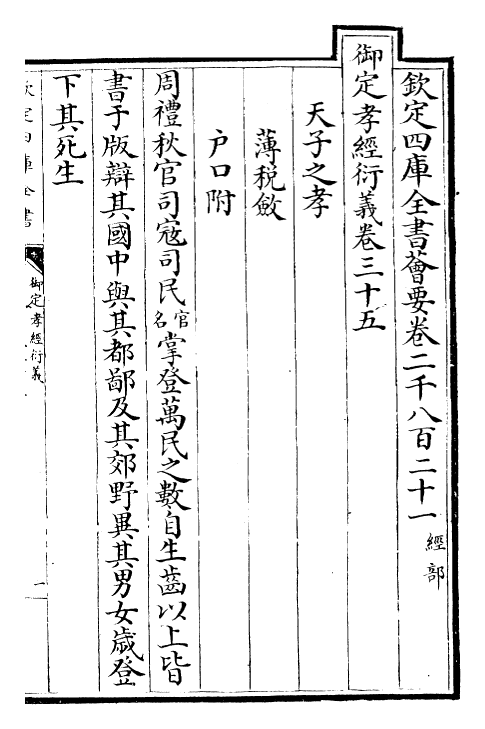 欽定四庫全書薈要卷二千八百二十一 經部
御定孝經衍義卷三十五
天子之孝
薄稅斂
户口附
周禮秋官司寇司民官名掌登萬民之數自生齒以上皆
書于版辯其國中與其都鄙及其郊野異其男女歲登
下其死生
欽定四庫全書
御定孝經衍義
一